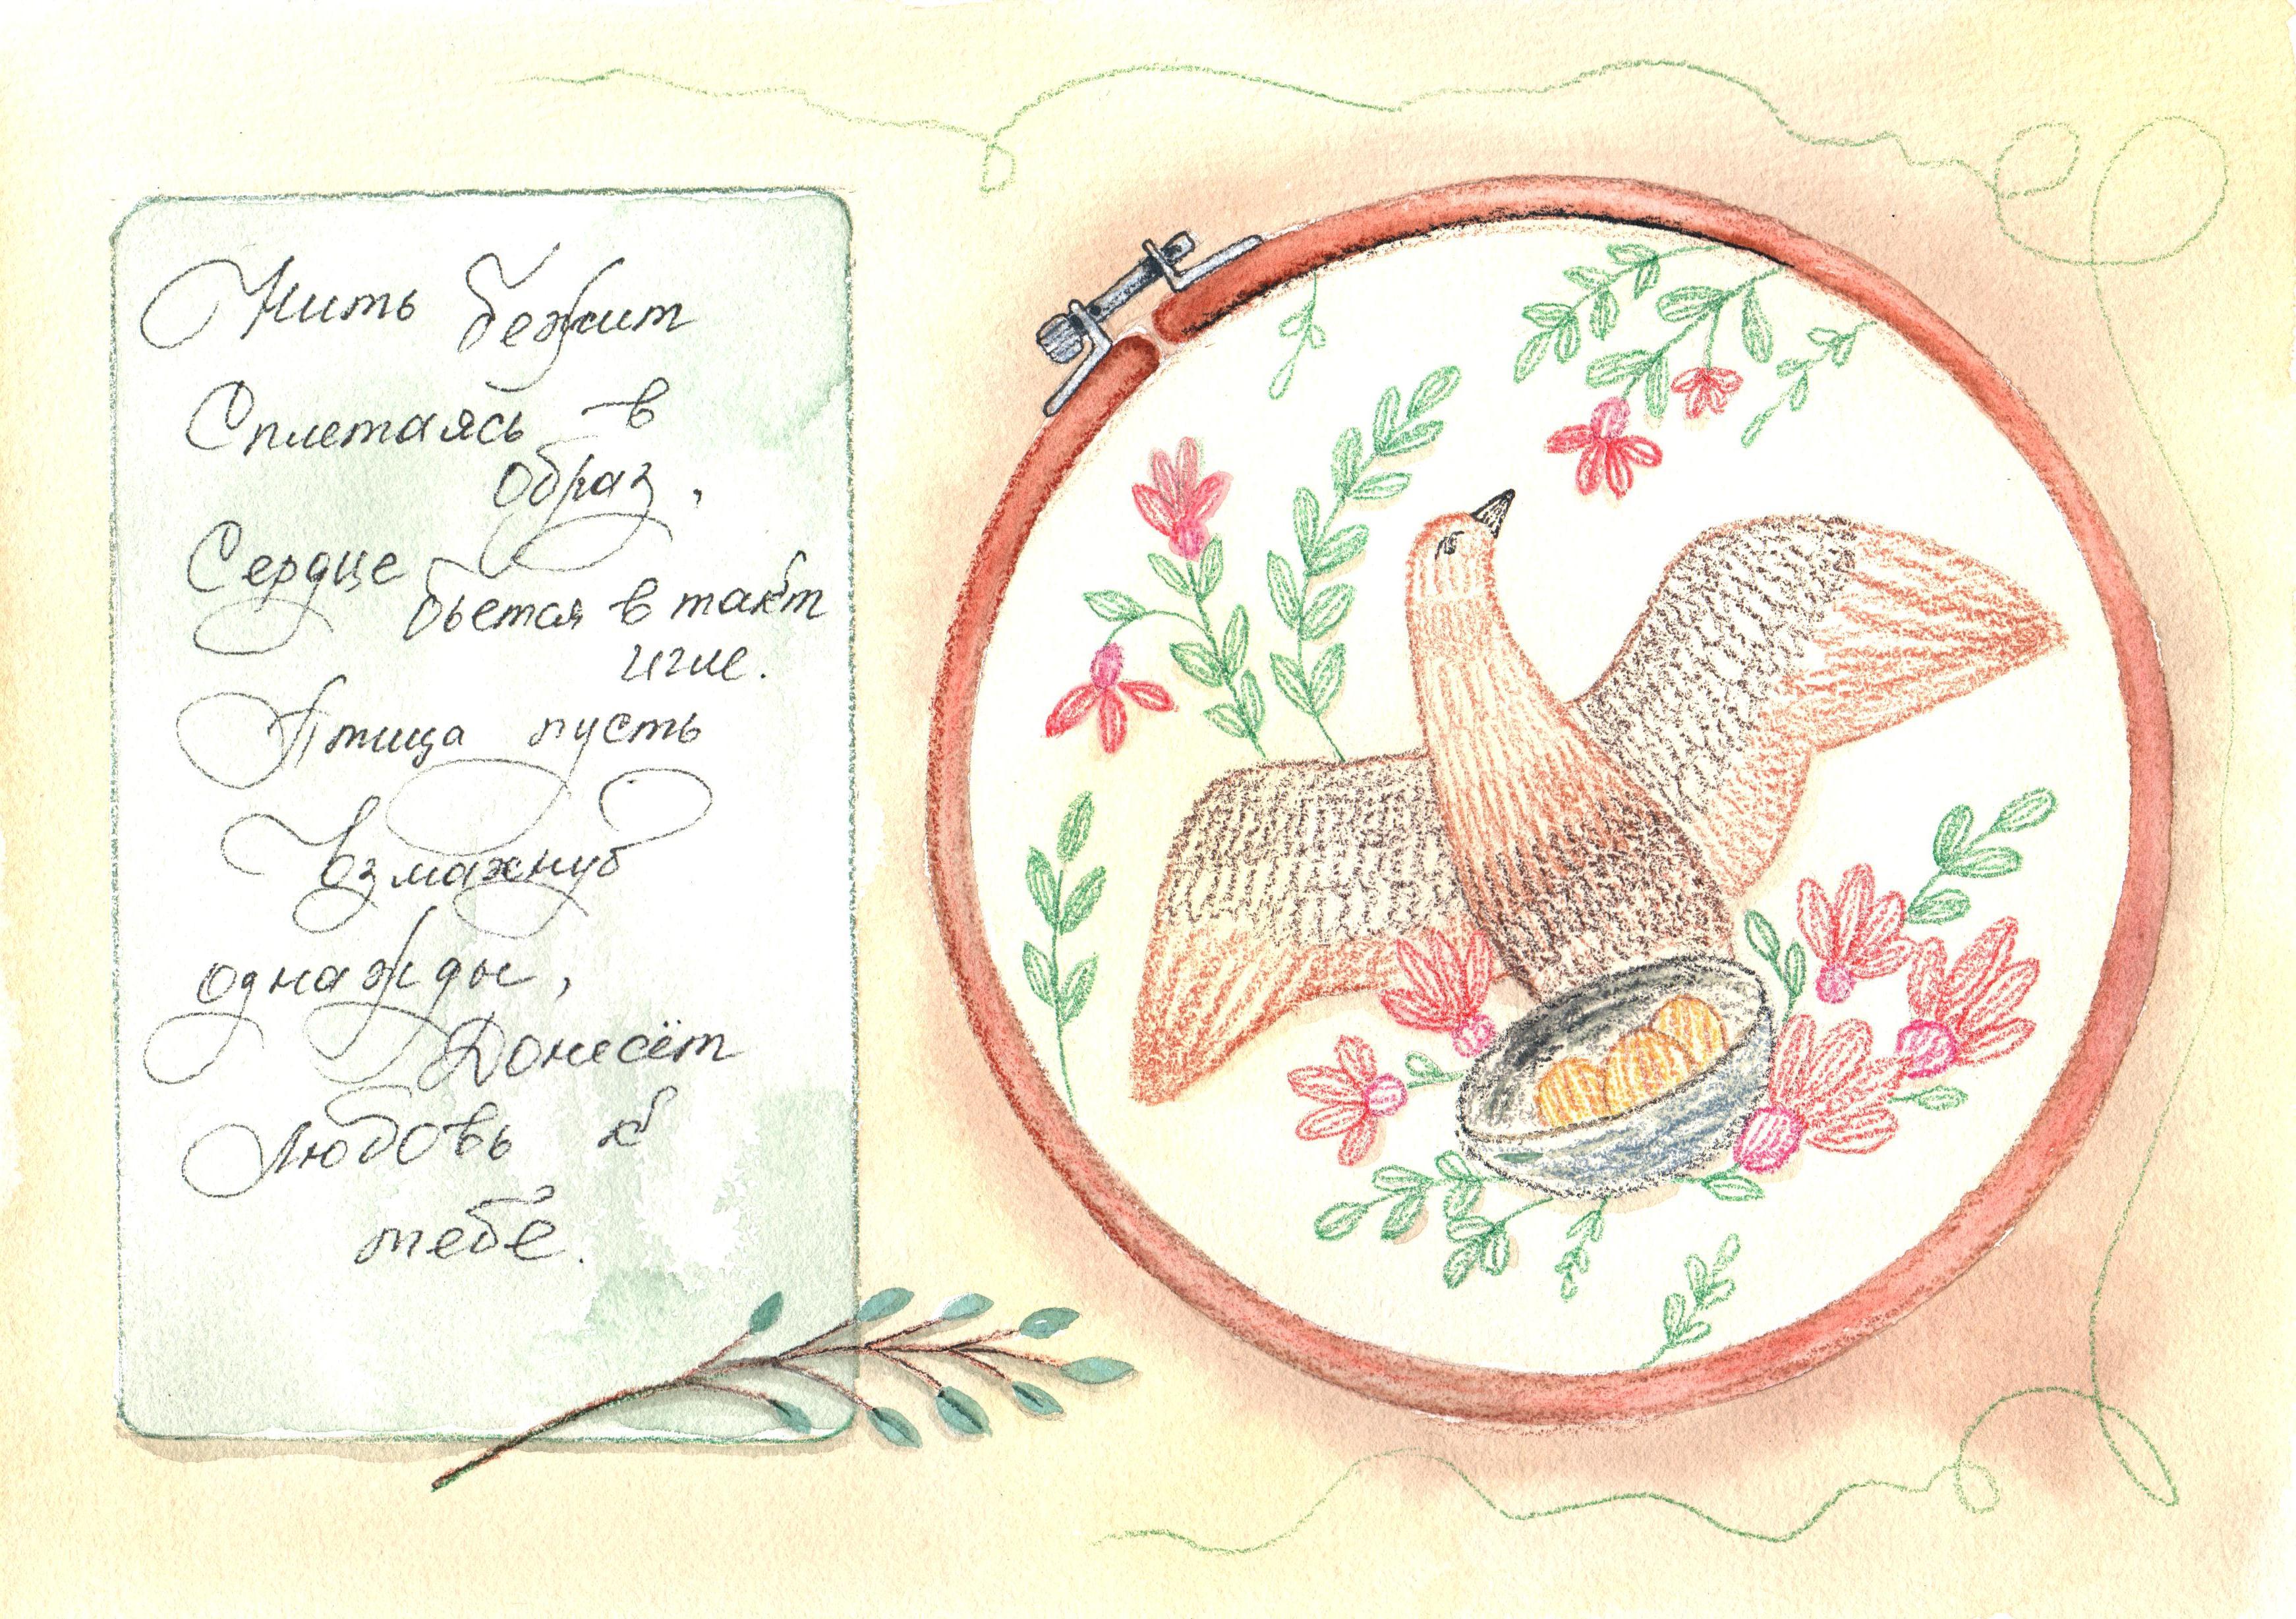 Нить бежит
Сплетаясь в
образ,
Сердце
бьется в такт
игле.
Птица пусть
взмахнув
однажды,
Донесёт
любовь к
тебе.